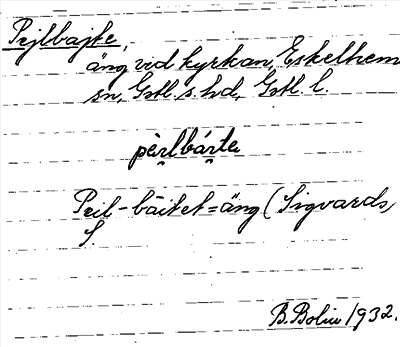 Pejlbajte,
äng vid kyrkan, Eskelhem
sn, Gotl. s. hd, Gotl. l.
pèrlbárte
Peil-bäitet=äng (Sigvards,
S.
B. Bolin 1932.